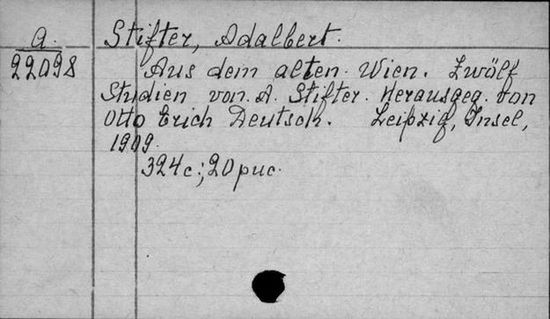 A.
22098
Stifter, Adalbert.
Aus dem alten Wien. Zwölf
Studien von A. Stifter. Herausgeg. von
Otto Erich Deutsch. Leipzig, Insel,
1909.
324 с.; 20 рис.